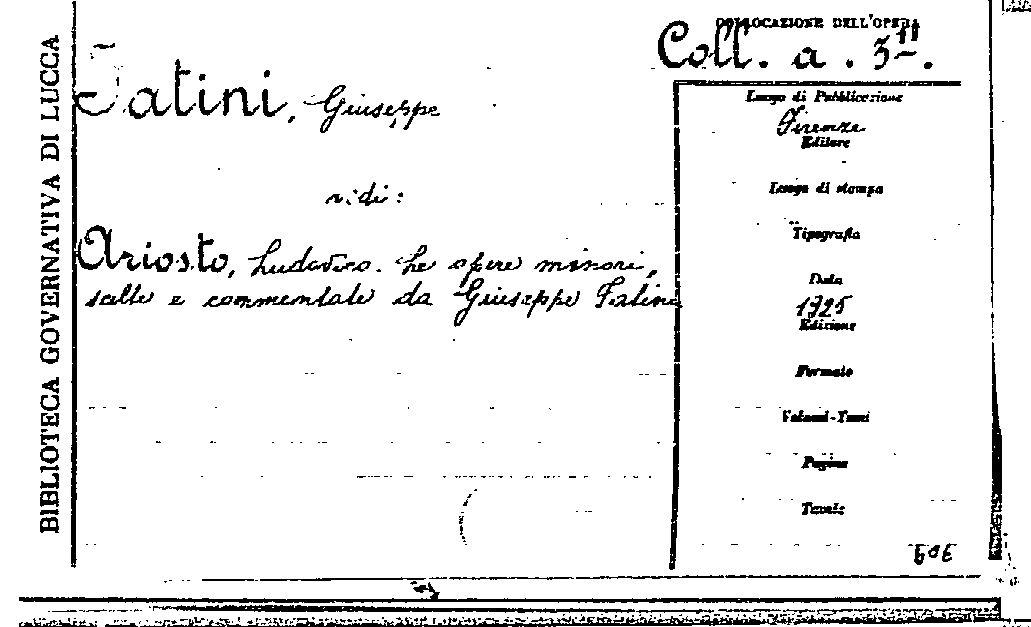 BIBLIOTECA GOVERNATIVA DI LUCCA
COLLOCAZIONE DELL'OPERA
Coll. a. 3¹¹.
Fatini, Giuseppe
vedi:
Ariosto, Ludovico. Le opere minori,
scelte e commentate da Giuseppe Fatini
Luogo di Pubblicazione
Firenze
Editore
Luogo di stampa
Tipografia
Data
1925
Edizione
Formato
Volumi-Tomi
Pagine
Tavole